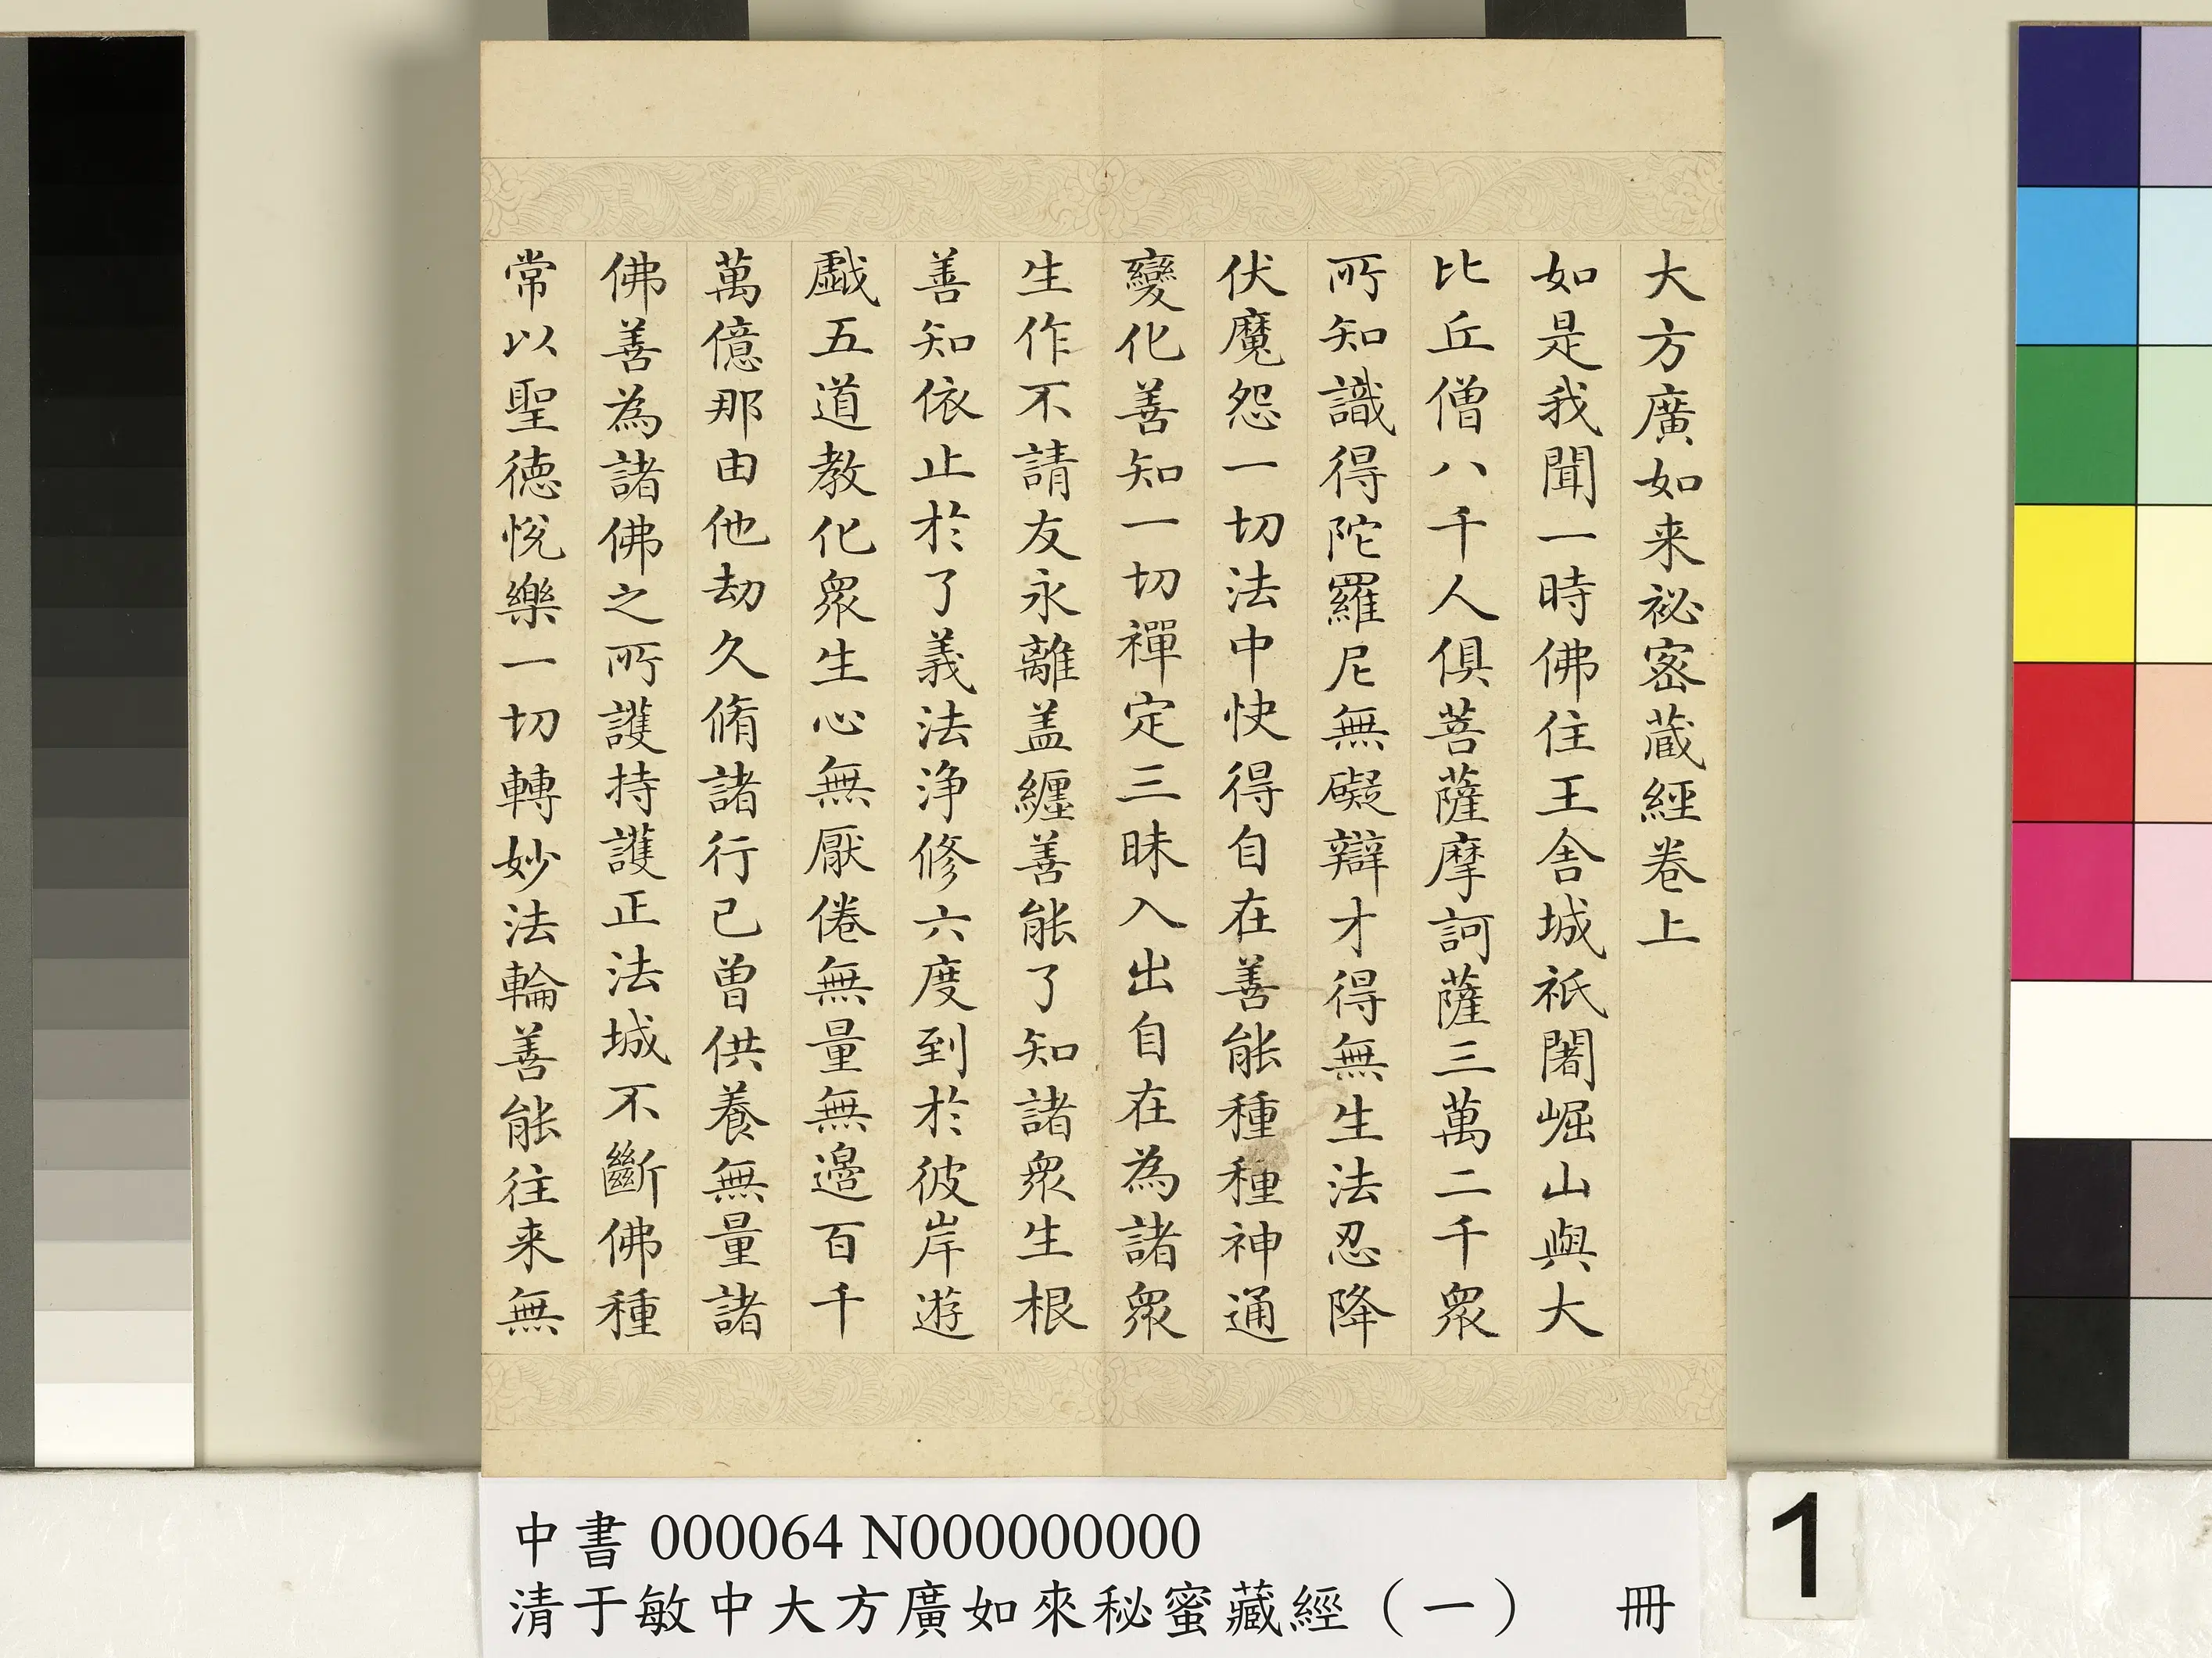 大方廣如来祕密蔵經卷上
如是我聞一時佛住王舎城祇闍崛山與大
比丘僧八千人俱菩薩摩訶薩三萬二千衆
所知識得陀羅尼無礙辯才得無生法忍降
伏魔怨一切法中快得自在善能種種神通
變化善知一切禪定三昧入出自在為諸衆
生作不請友永離盖纏善能了知諸衆生根
善知依止於了義法浄修六度到於彼岸遊
戯五道教化衆生心無厭倦無量無邊百千
萬億那由他劫久脩諸行已曾供養無量諸
佛善為諸佛之所護持護正法城不斷佛種
常以聖德悅樂一切轉妙法輪善能往来無
中書 000064 N000000000
清于敏中大方廣如來秘蜜藏經（一） 冊
1